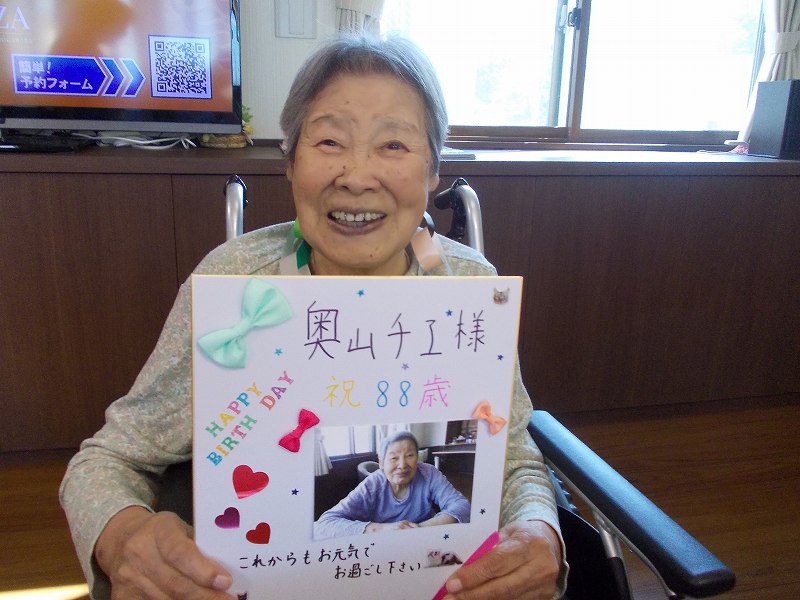 ZA
簡単！
予約フォーム
奥山チエ様
祝 88歳
HAPPY
BIRTH DAY
これからもお元気で
お過ごし下さい